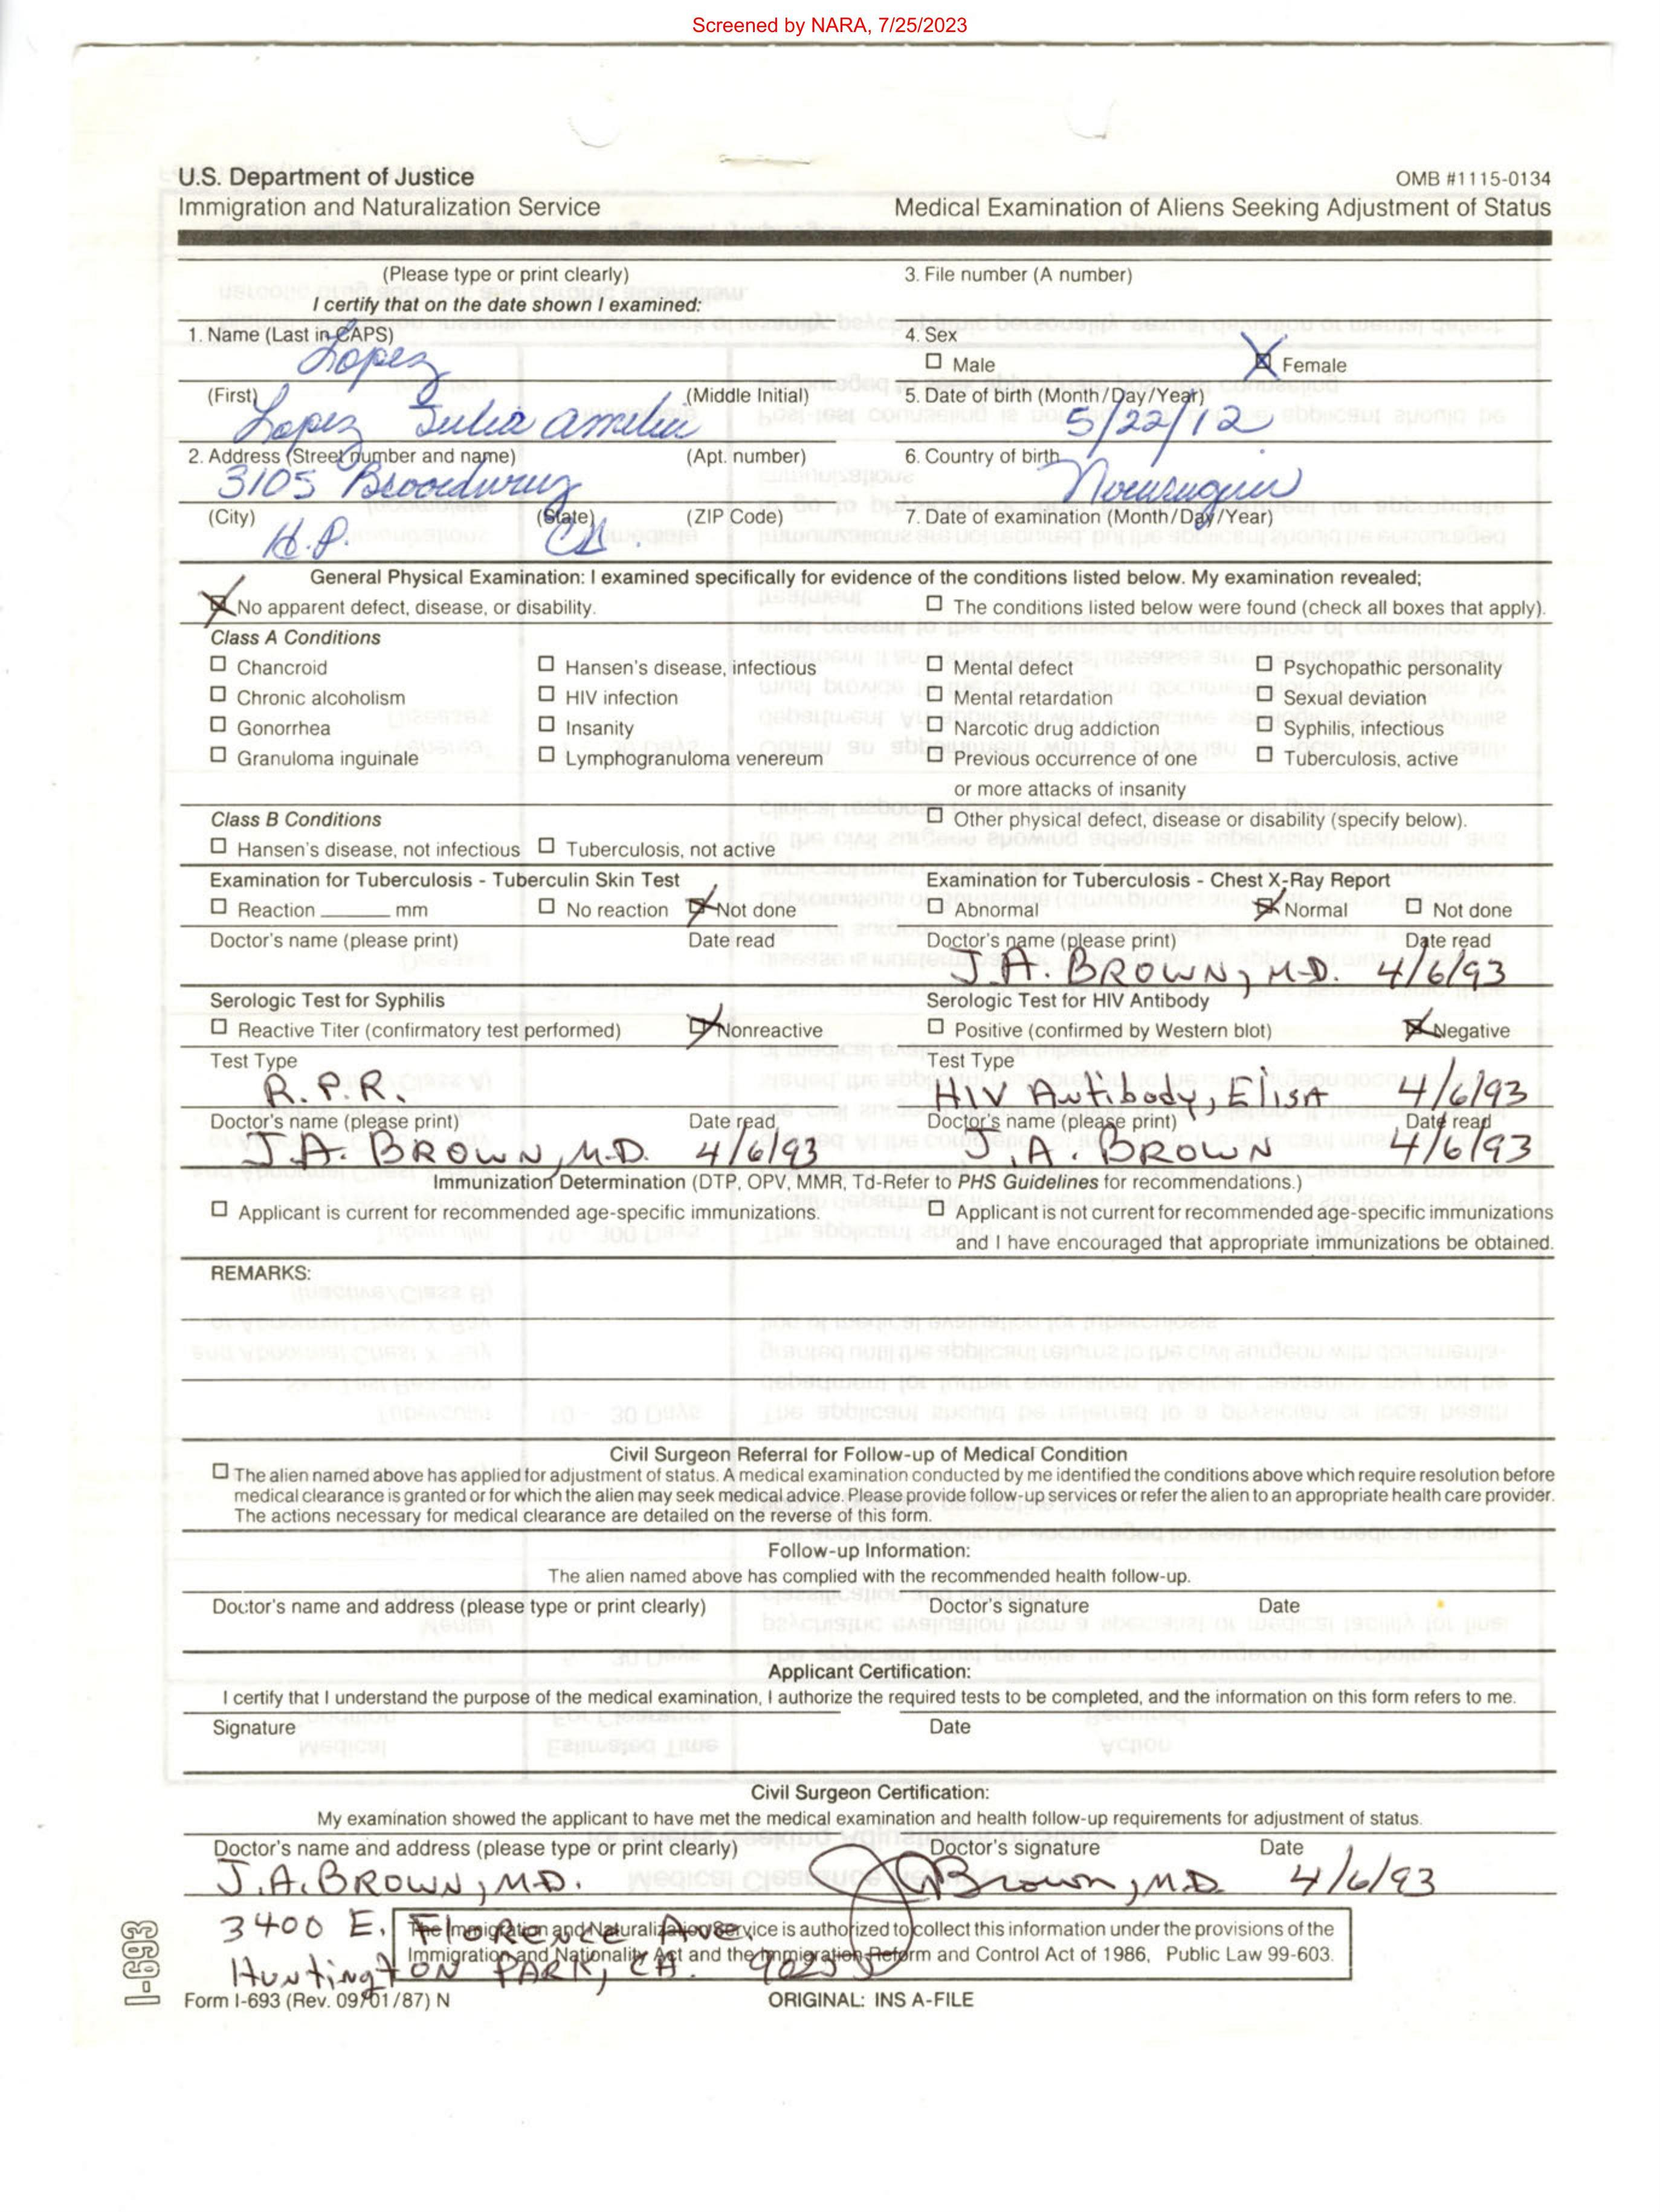 Screened by NARA, 7/25/2023
U.S. Department of Justice
OMB #1115-0134
Immigration and Naturalization Service
Medical Examination of Aliens Seeking Adjustment of Status
(Please type or print clearly)
3. File number (A number)
I certify that on the date shown I examined:
1. Name (Last in CAPS)
Lopez
4. Sex
☐ Male ☒ Female
(First) (Middle Initial)
Lopez Julia Amelia
5. Date of birth (Month/Day/Year)
5/22/12
2. Address (Street number and name) (Apt. number)
3105 Broadway
6. Country of birth
(City) (State) (ZIP Code)
H.P. CA.
7. Date of examination (Month/Day/Year)
General Physical Examination: I examined specifically for evidence of the conditions listed below. My examination revealed;
☒ No apparent defect, disease, or disability.
☐ The conditions listed below were found (check all boxes that apply).
Class A Conditions
☐ Chancroid ☐ Hansen's disease, infectious ☐ Mental defect ☐ Psychopathic personality
☐ Chronic alcoholism ☐ HIV infection ☐ Mental retardation ☐ Sexual deviation
☐ Gonorrhea ☐ Insanity ☐ Narcotic drug addiction ☐ Syphilis, infectious
☐ Granuloma inguinale ☐ Lymphogranuloma venereum ☐ Previous occurrence of one ☐ Tuberculosis, active
or more attacks of insanity
Class B Conditions
☐ Other physical defect, disease or disability (specify below).
☐ Hansen's disease, not infectious ☐ Tuberculosis, not active
Examination for Tuberculosis - Tuberculin Skin Test
Examination for Tuberculosis - Chest X-Ray Report
☐ Reaction ______ mm ☐ No reaction ☒ Not done
☐ Abnormal ☒ Normal ☐ Not done
Doctor's name (please print) Date read
Doctor's name (please print) Date read
J.A. BROWN, M.D. 4/6/93
Serologic Test for Syphilis
Serologic Test for HIV Antibody
☐ Reactive Titer (confirmatory test performed) ☒ Nonreactive
☐ Positive (confirmed by Western blot) ☒ Negative
Test Type
R.P.R.
Test Type
HIV Antibody, ElisA 4/6/93
Doctor's name (please print) Date read
J.A. BROWN, M.D. 4/6/93
Doctor's name (please print) Date read
J.A. BROWN 4/6/93
Immunization Determination (DTP, OPV, MMR, Td-Refer to PHS Guidelines for recommendations.)
☐ Applicant is current for recommended age-specific immunizations.
☐ Applicant is not current for recommended age-specific immunizations
and I have encouraged that appropriate immunizations be obtained.
REMARKS:
Civil Surgeon Referral for Follow-up of Medical Condition
☐ The alien named above has applied for adjustment of status. A medical examination conducted by me identified the conditions above which require resolution before
medical clearance is granted or for which the alien may seek medical advice. Please provide follow-up services or refer the alien to an appropriate health care provider.
The actions necessary for medical clearance are detailed on the reverse of this form.
Follow-up Information:
The alien named above has complied with the recommended health follow-up.
Doctor's name and address (please type or print clearly) Doctor's signature Date
Applicant Certification:
I certify that I understand the purpose of the medical examination, I authorize the required tests to be completed, and the information on this form refers to me.
Signature Date
Civil Surgeon Certification:
My examination showed the applicant to have met the medical examination and health follow-up requirements for adjustment of status.
Doctor's name and address (please type or print clearly) Doctor's signature Date
J.A. BROWN, M.D. JABrown, MD 4/6/93
3400 E. Florence Ave.
Huntington PARK, CA. 90255
The Immigration and Naturalization Service is authorized to collect this information under the provisions of the
Immigration and Nationality Act and the Immigration Reform and Control Act of 1986, Public Law 99-603.
I-693
Form I-693 (Rev. 09/01/87) N
ORIGINAL: INS A-FILE